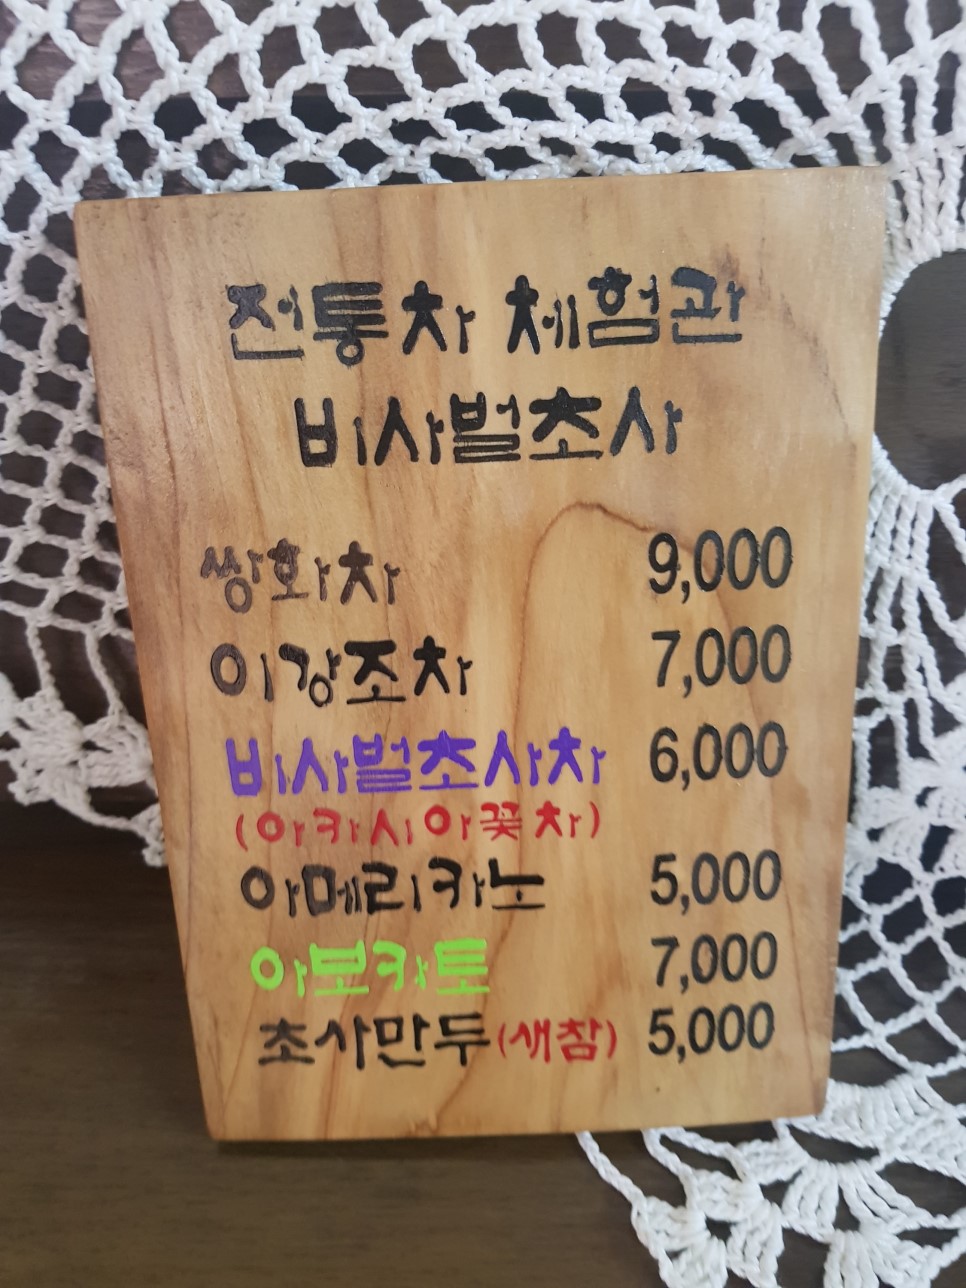 전통차 체험관
비사벌초사
쌍화차 9,000
이강조차 7,000
비사벌초사차 6,000
(아카시아꽃차)
아메리카노 5,000
아보카토 7,000
초사만두(새참) 5,000